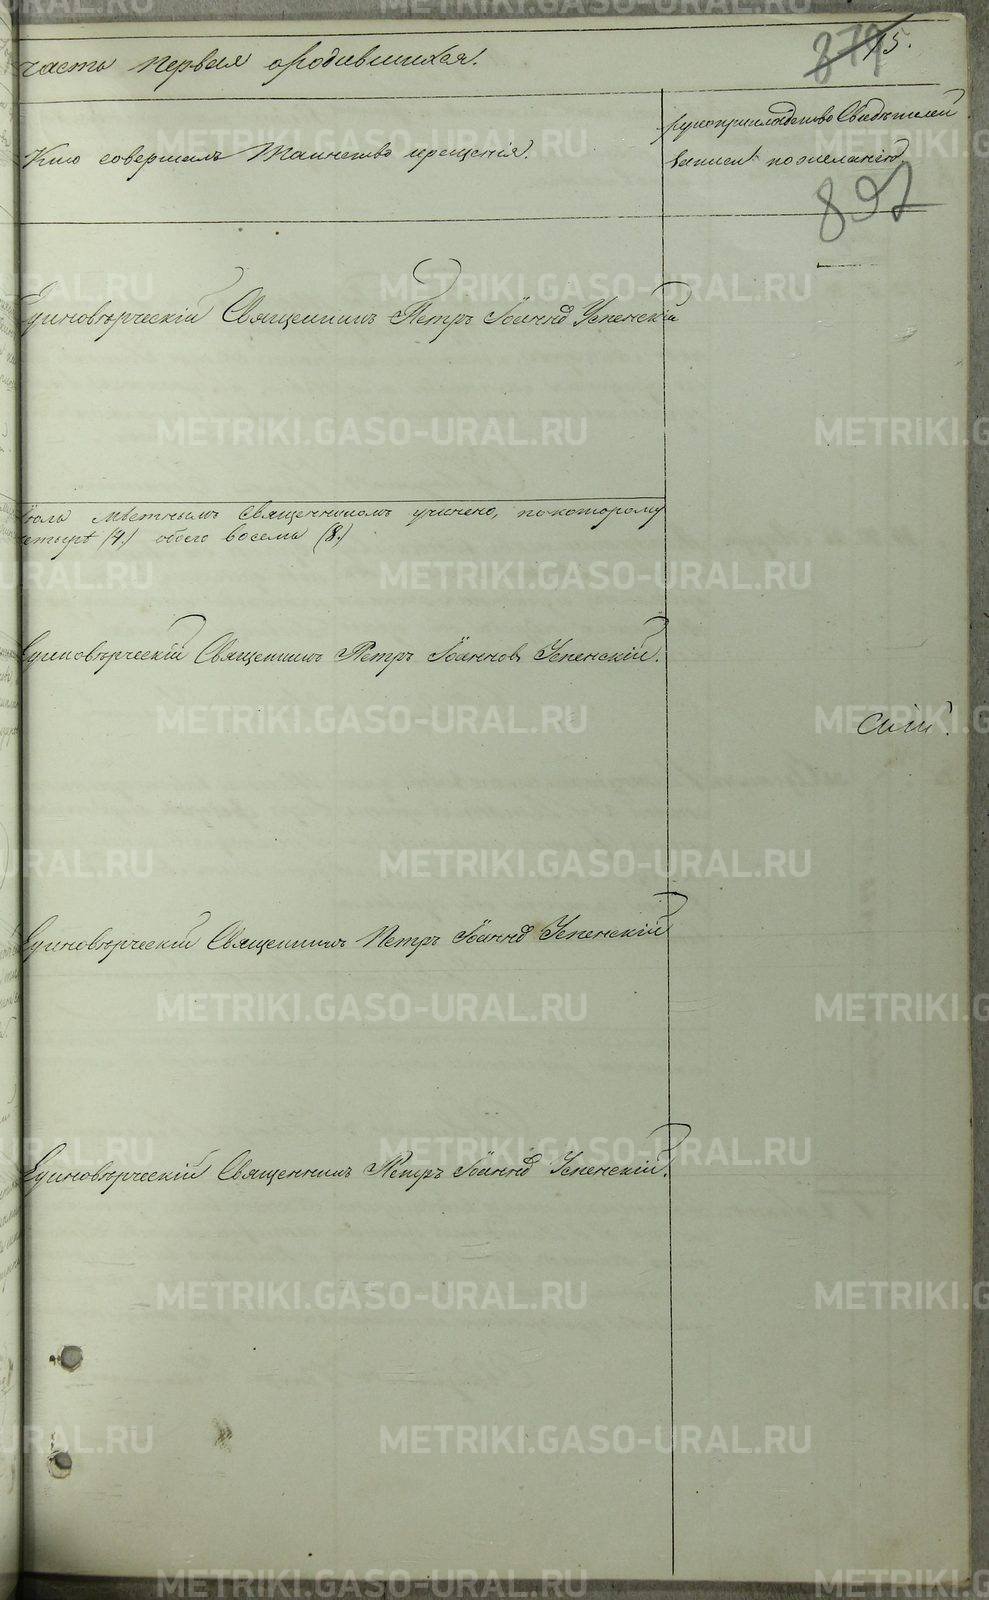 часть первая о родившихся.
879
15.
Кто совершалъ Таинство крещенія.
рукоприкладство Свидѣтелей
записи по желанію.
897
Единовѣрческій Священникъ Петръ Іоаннов Успенскій
мѣстнымъ Священникомъ учинено, по которому
четыре (4.) обоего восемь (8.)
Единовѣрческій Священникъ Петръ Іоанновъ Успенскій.
Единовѣрческій Священникъ Петръ Іоаннов Успенскій
Единовѣрческій Священникъ Петръ Іоаннов Успенскій.
METRIKI.GASO-URAL.RU